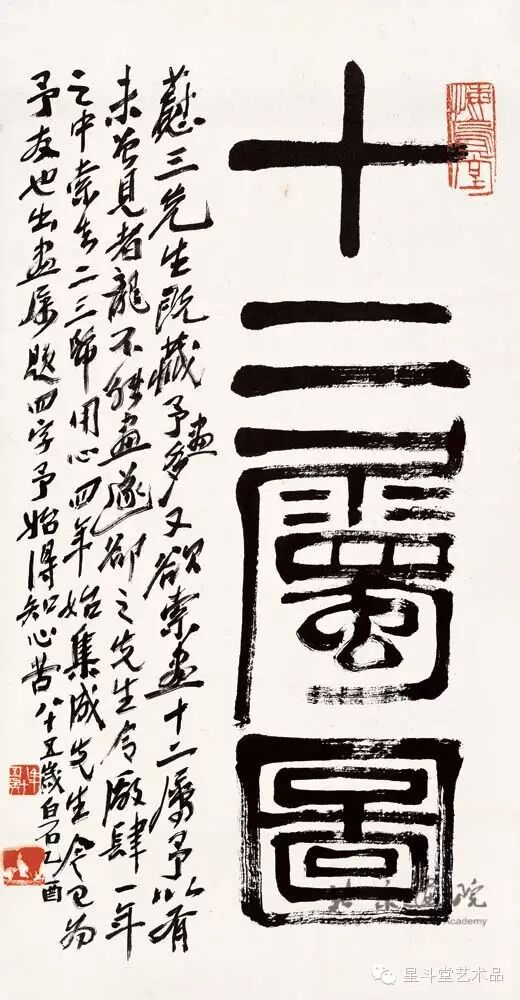 十二屬圖
三先生既藏予畫多又欲索畫十二屬予以有
未曾見者龍不能畫遂却之先生令廠肆一年
之中索去二三幅用心四年始集成先生今已為
予友也出畫屬題四字予始得知心苦八十五歲白石乙酉
悔烏堂
院
Academy
星斗堂艺术品